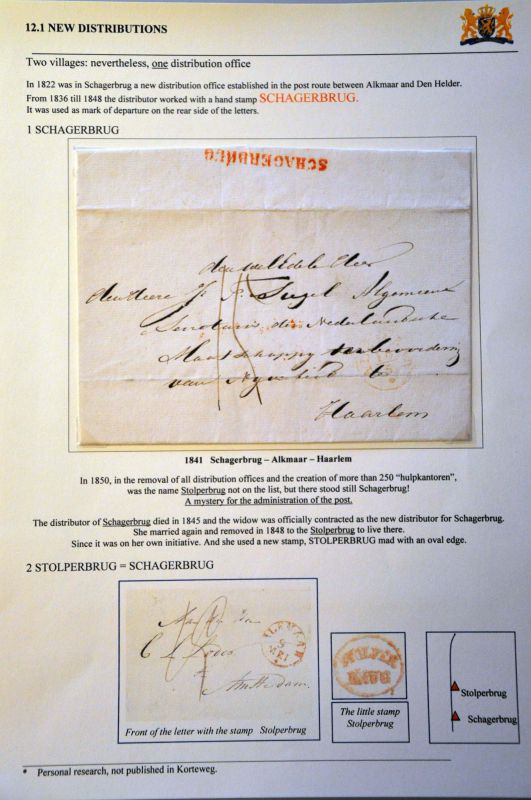 12.1 NEW DISTRIBUTIONS
Two villages: nevertheless, one distribution office
In 1822 was in Schagerbrug a new distribution office established in the post route between Alkmaar and Den Helder.
From 1836 till 1848 the distributor worked with a hand stamp SCHAGERBRUG.
It was used as mark of departure on the rear side of the letters.
1 SCHAGERBRUG
SCHAGERBRUG
den Heere
Algemeene
Secretaris der Nederlandsche
Maatschappij
van Nijverheid te
Haarlem
1841 Schagerbrug – Alkmaar – Haarlem
In 1850, in the removal of all distribution offices and the creation of more than 250 “hulpkantoren”,
was the name Stolperbrug not on the list, but there stood still Schagerbrug!
A mystery for the administration of the post.
The distributor of Schagerbrug died in 1845 and the widow was officially contracted as the new distributor for Schagerbrug.
She married again and removed in 1848 to the Stolperbrug to live there.
Since it was on her own initiative. And she used a new stamp, STOLPERBRUG mad with an oval edge.
2 STOLPERBRUG = SCHAGERBRUG
ALKMAAR
5
MEI
Amsterdam.
Front of the letter with the stamp Stolperbrug
STOLPER
BRUG
The little stamp
Stolperbrug
Stolperbrug
Schagerbrug
* Personal research, not published in Korteweg.